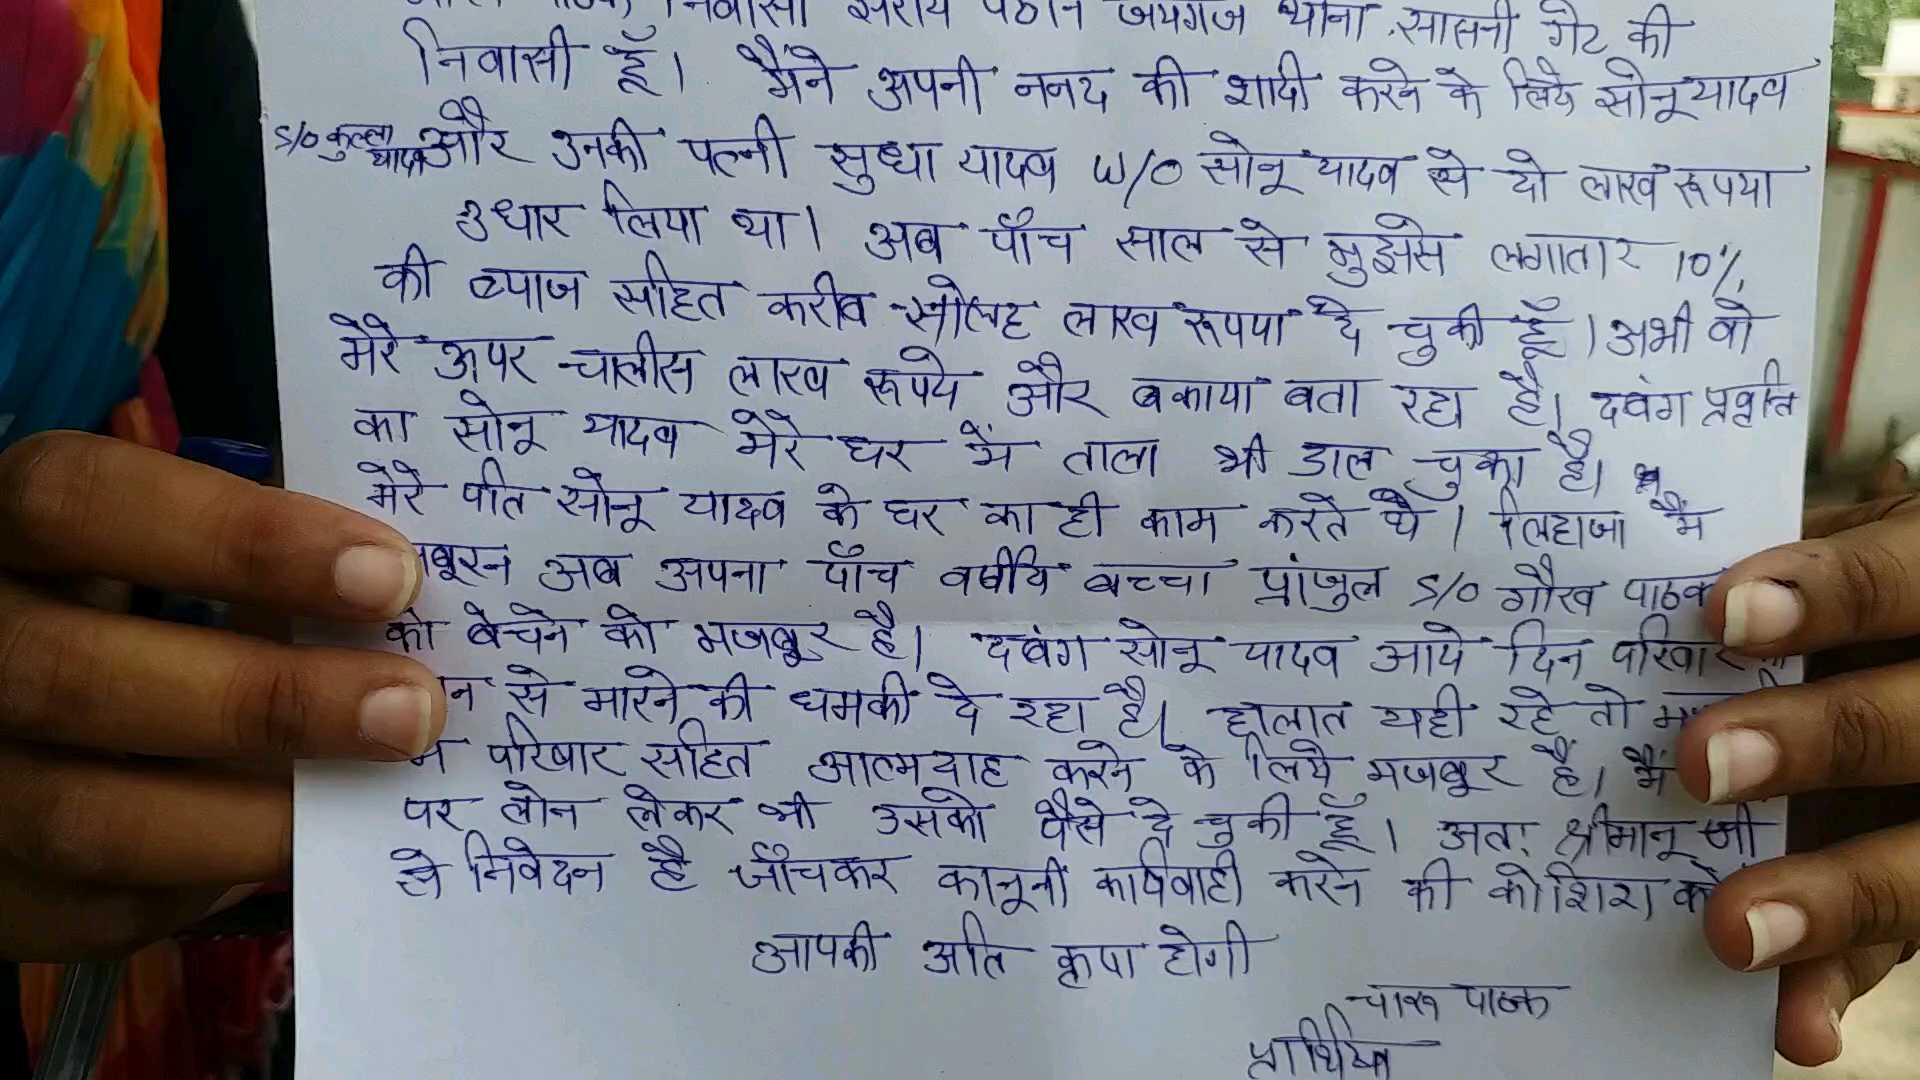 निवासी सराय पठान जयगंज थाना सासनी गेट की
निवासी हूँ। मैंने अपनी ननद की शादी करने के लिये सोनू यादव
s/o कुल्ला यादव और उनकी पत्नी सुधा यादव w/o सोनू यादव से दो लाख रूपया
उधार लिया था। अब पाँच साल से मुझसे लगातार 10%
की ब्याज सहित करीब सोलह लाख रूपया दे चुकी हूँ। अभी वो
मेरे ऊपर चालीस लाख रूपये और बकाया बता रहा है। दबंग प्रवृत्ति
का सोनू यादव मेरे घर में ताला भी डाल चुका है।
मेरे पति सोनू यादव के घर का ही काम करते थे। लिहाजा मैं
अब अपना पाँच वर्षीय बच्चा प्रांजुल s/o गौरव पाठक
को बेचने को मजबूर है। दबंग सोनू यादव आये दिन परिवार
से मारने की धमकी दे रहा है। हालात यही रहे तो
परिवार सहित आत्मदाह करने के लिये मजबूर हैं। मैं
पर लोन लेकर भी उसको पैसे दे चुकी हूँ। अतः श्रीमान् जी
से निवेदन है जाँचकर कानूनी कार्यवाही करने की कोशिश
आपकी अति कृपा होगी
चारू पाठक
प्रार्थिया